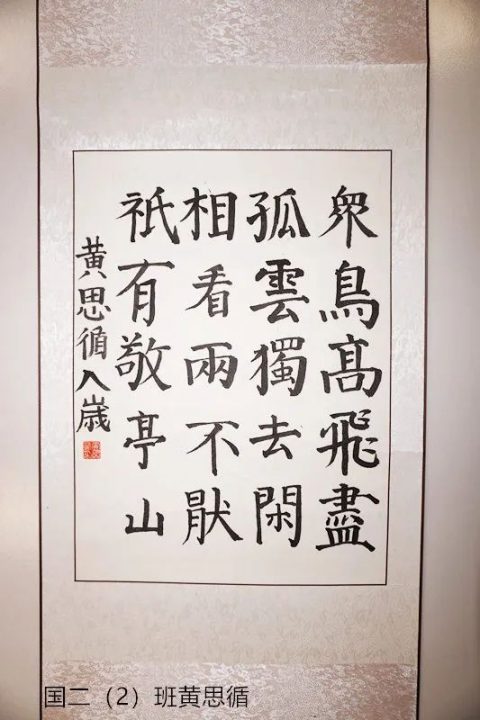 衆鳥髙飛盡
孤雲獨去閑
相看兩不猒
祇有敬亭山
黄思循八歲
国二（2）班黄思循